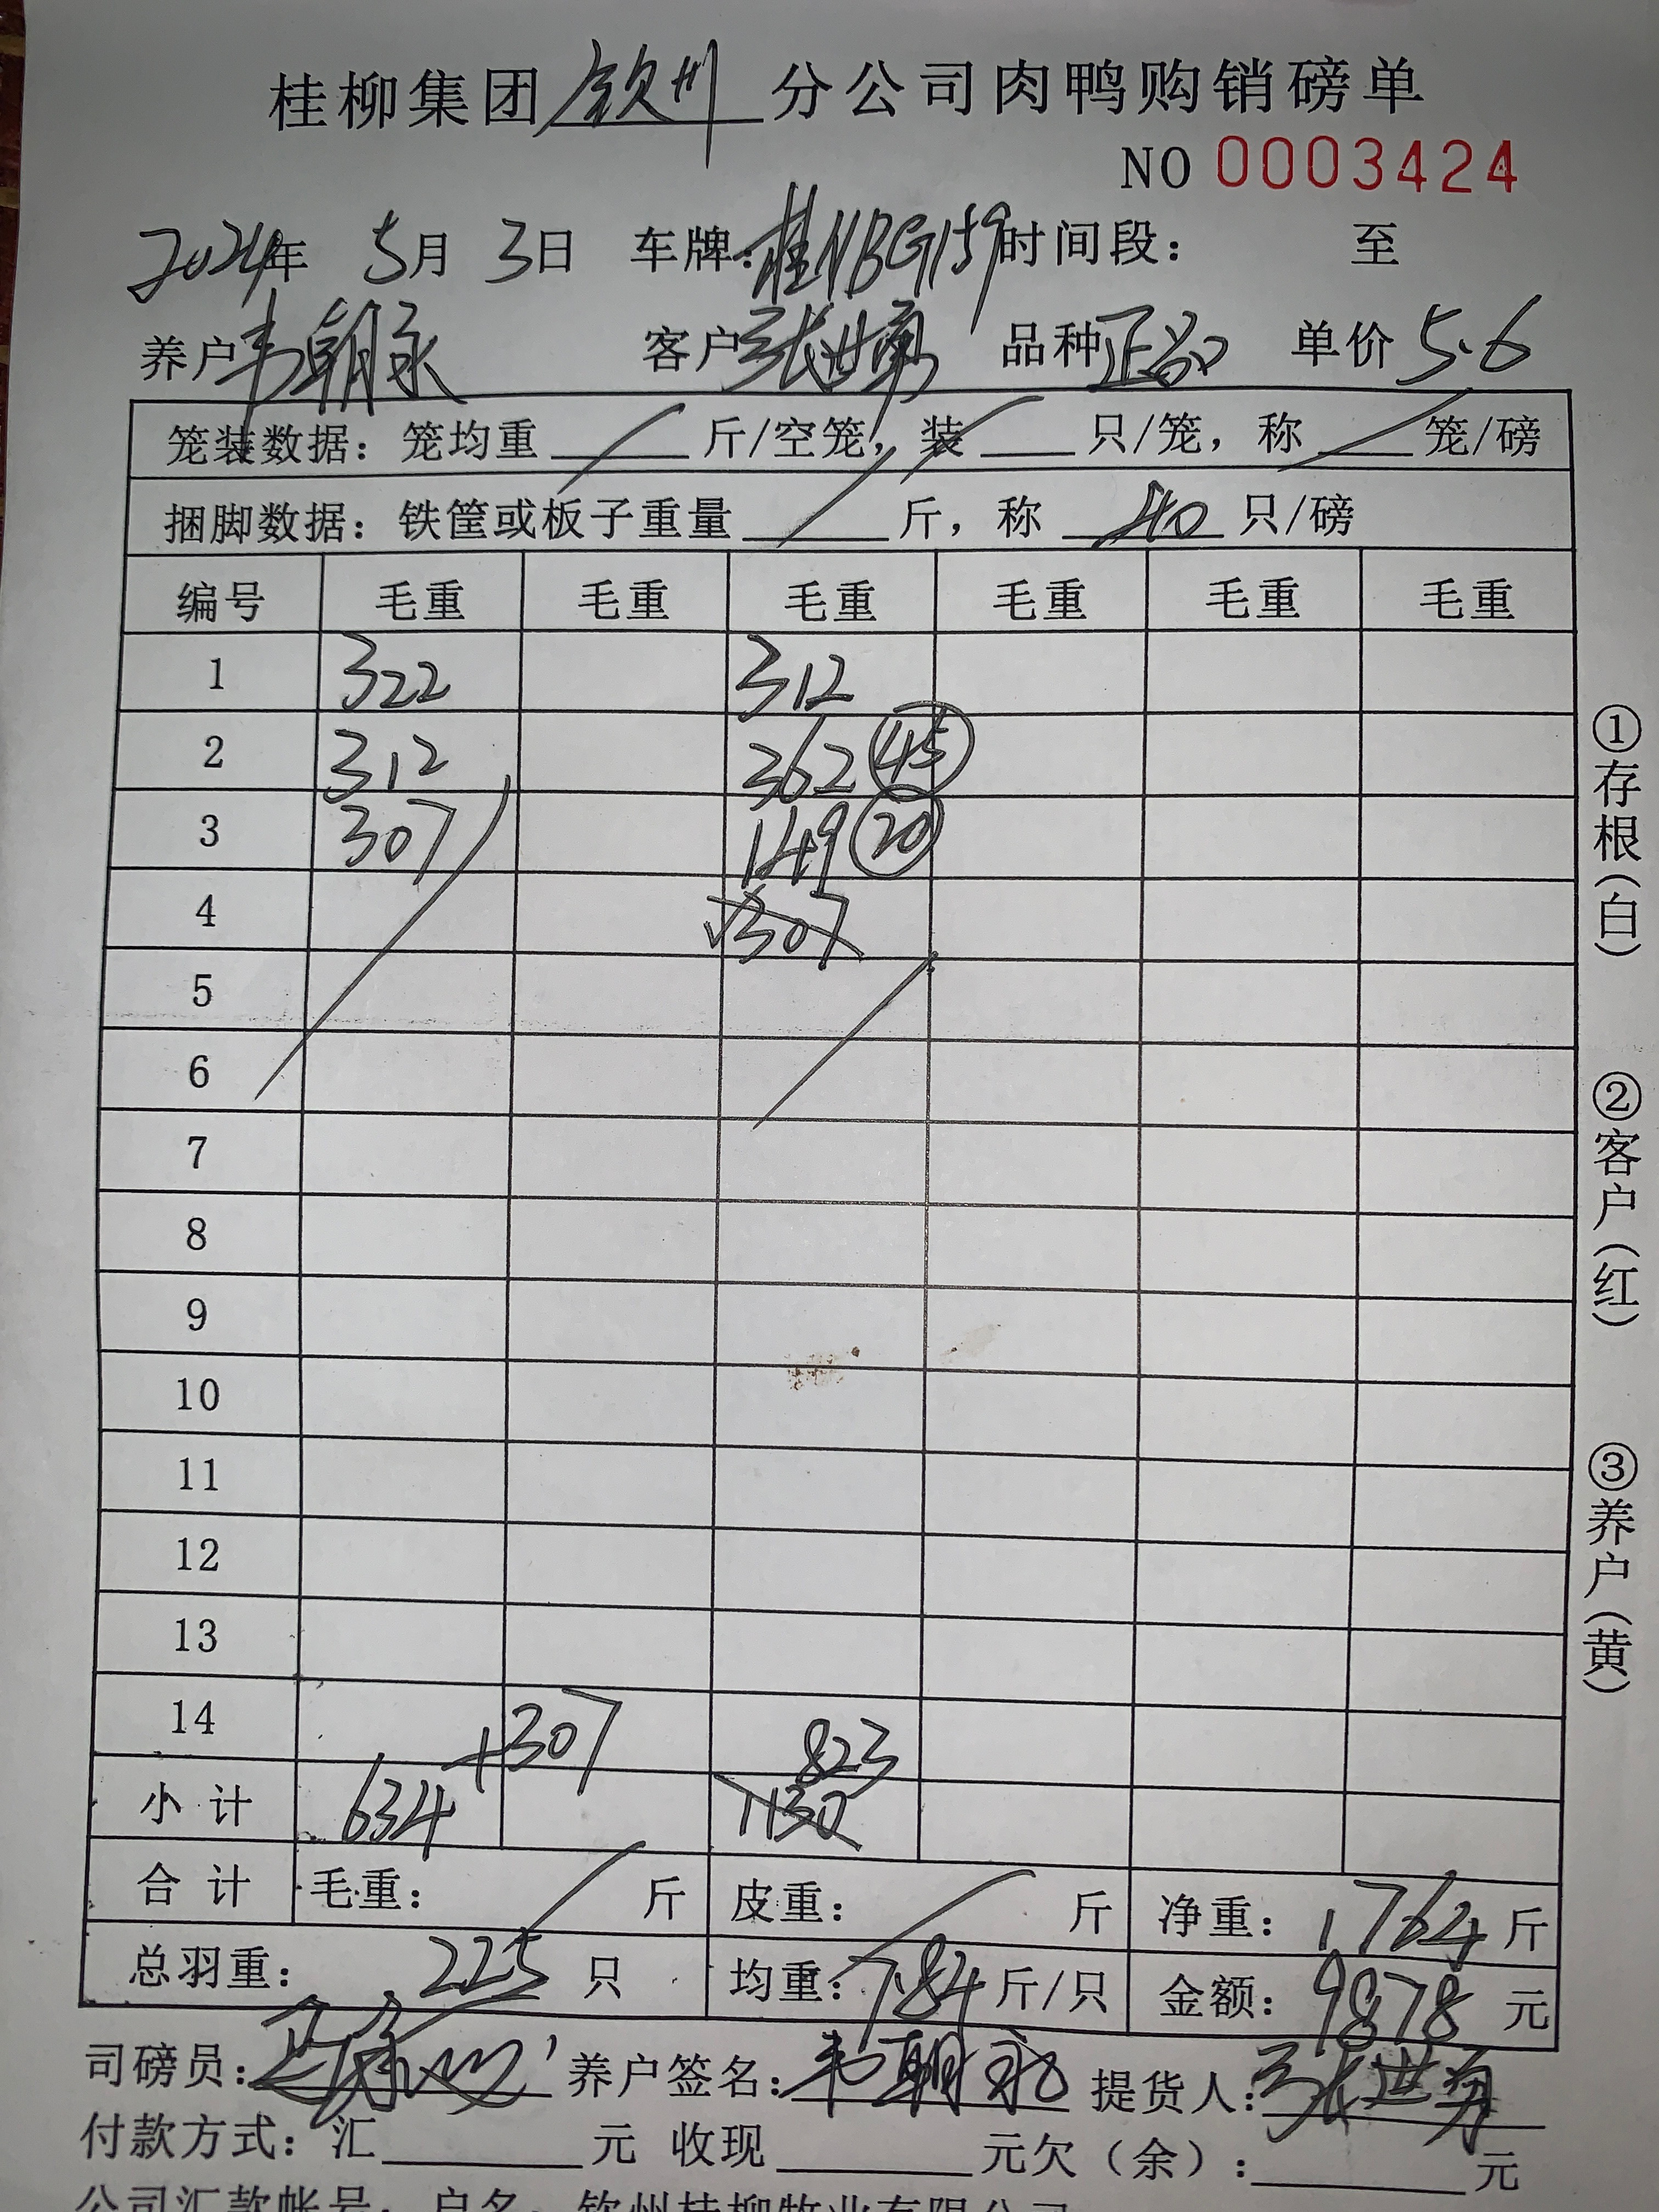 桂柳集团钦州分公司肉鸭购销磅单
NO 0003424
2024年 5月 3日 车牌:桂NBG159时间段: 至
养户韦朝永 客户张世勇 品种正品 单价5.6
笼装数据: 笼均重 斤/空笼, 装 只/笼, 称 笼/磅
捆脚数据: 铁筐或板子重量 斤, 称 40 只/磅
编号 毛重 毛重 毛重 毛重 毛重 毛重
1 322 312
2 312 362 (45)
3 307 149 (20)
4 307
5
6
7
8
9
10
11
12
13
14 +307 823
小计 634 1130
合计 毛重: 斤 皮重: 斤 净重: 1764斤
总羽重: 225 只 均重: 7.84斤/只 金额: 9878 元
司磅员: 养户签名:韦朝永 提货人:张世勇
付款方式: 汇 元 收现 元欠(余): 元
公司汇款帐号: 户名: 钦州桂柳牧业有限公司
①存根(白)
②客户(红)
③养户(黄)